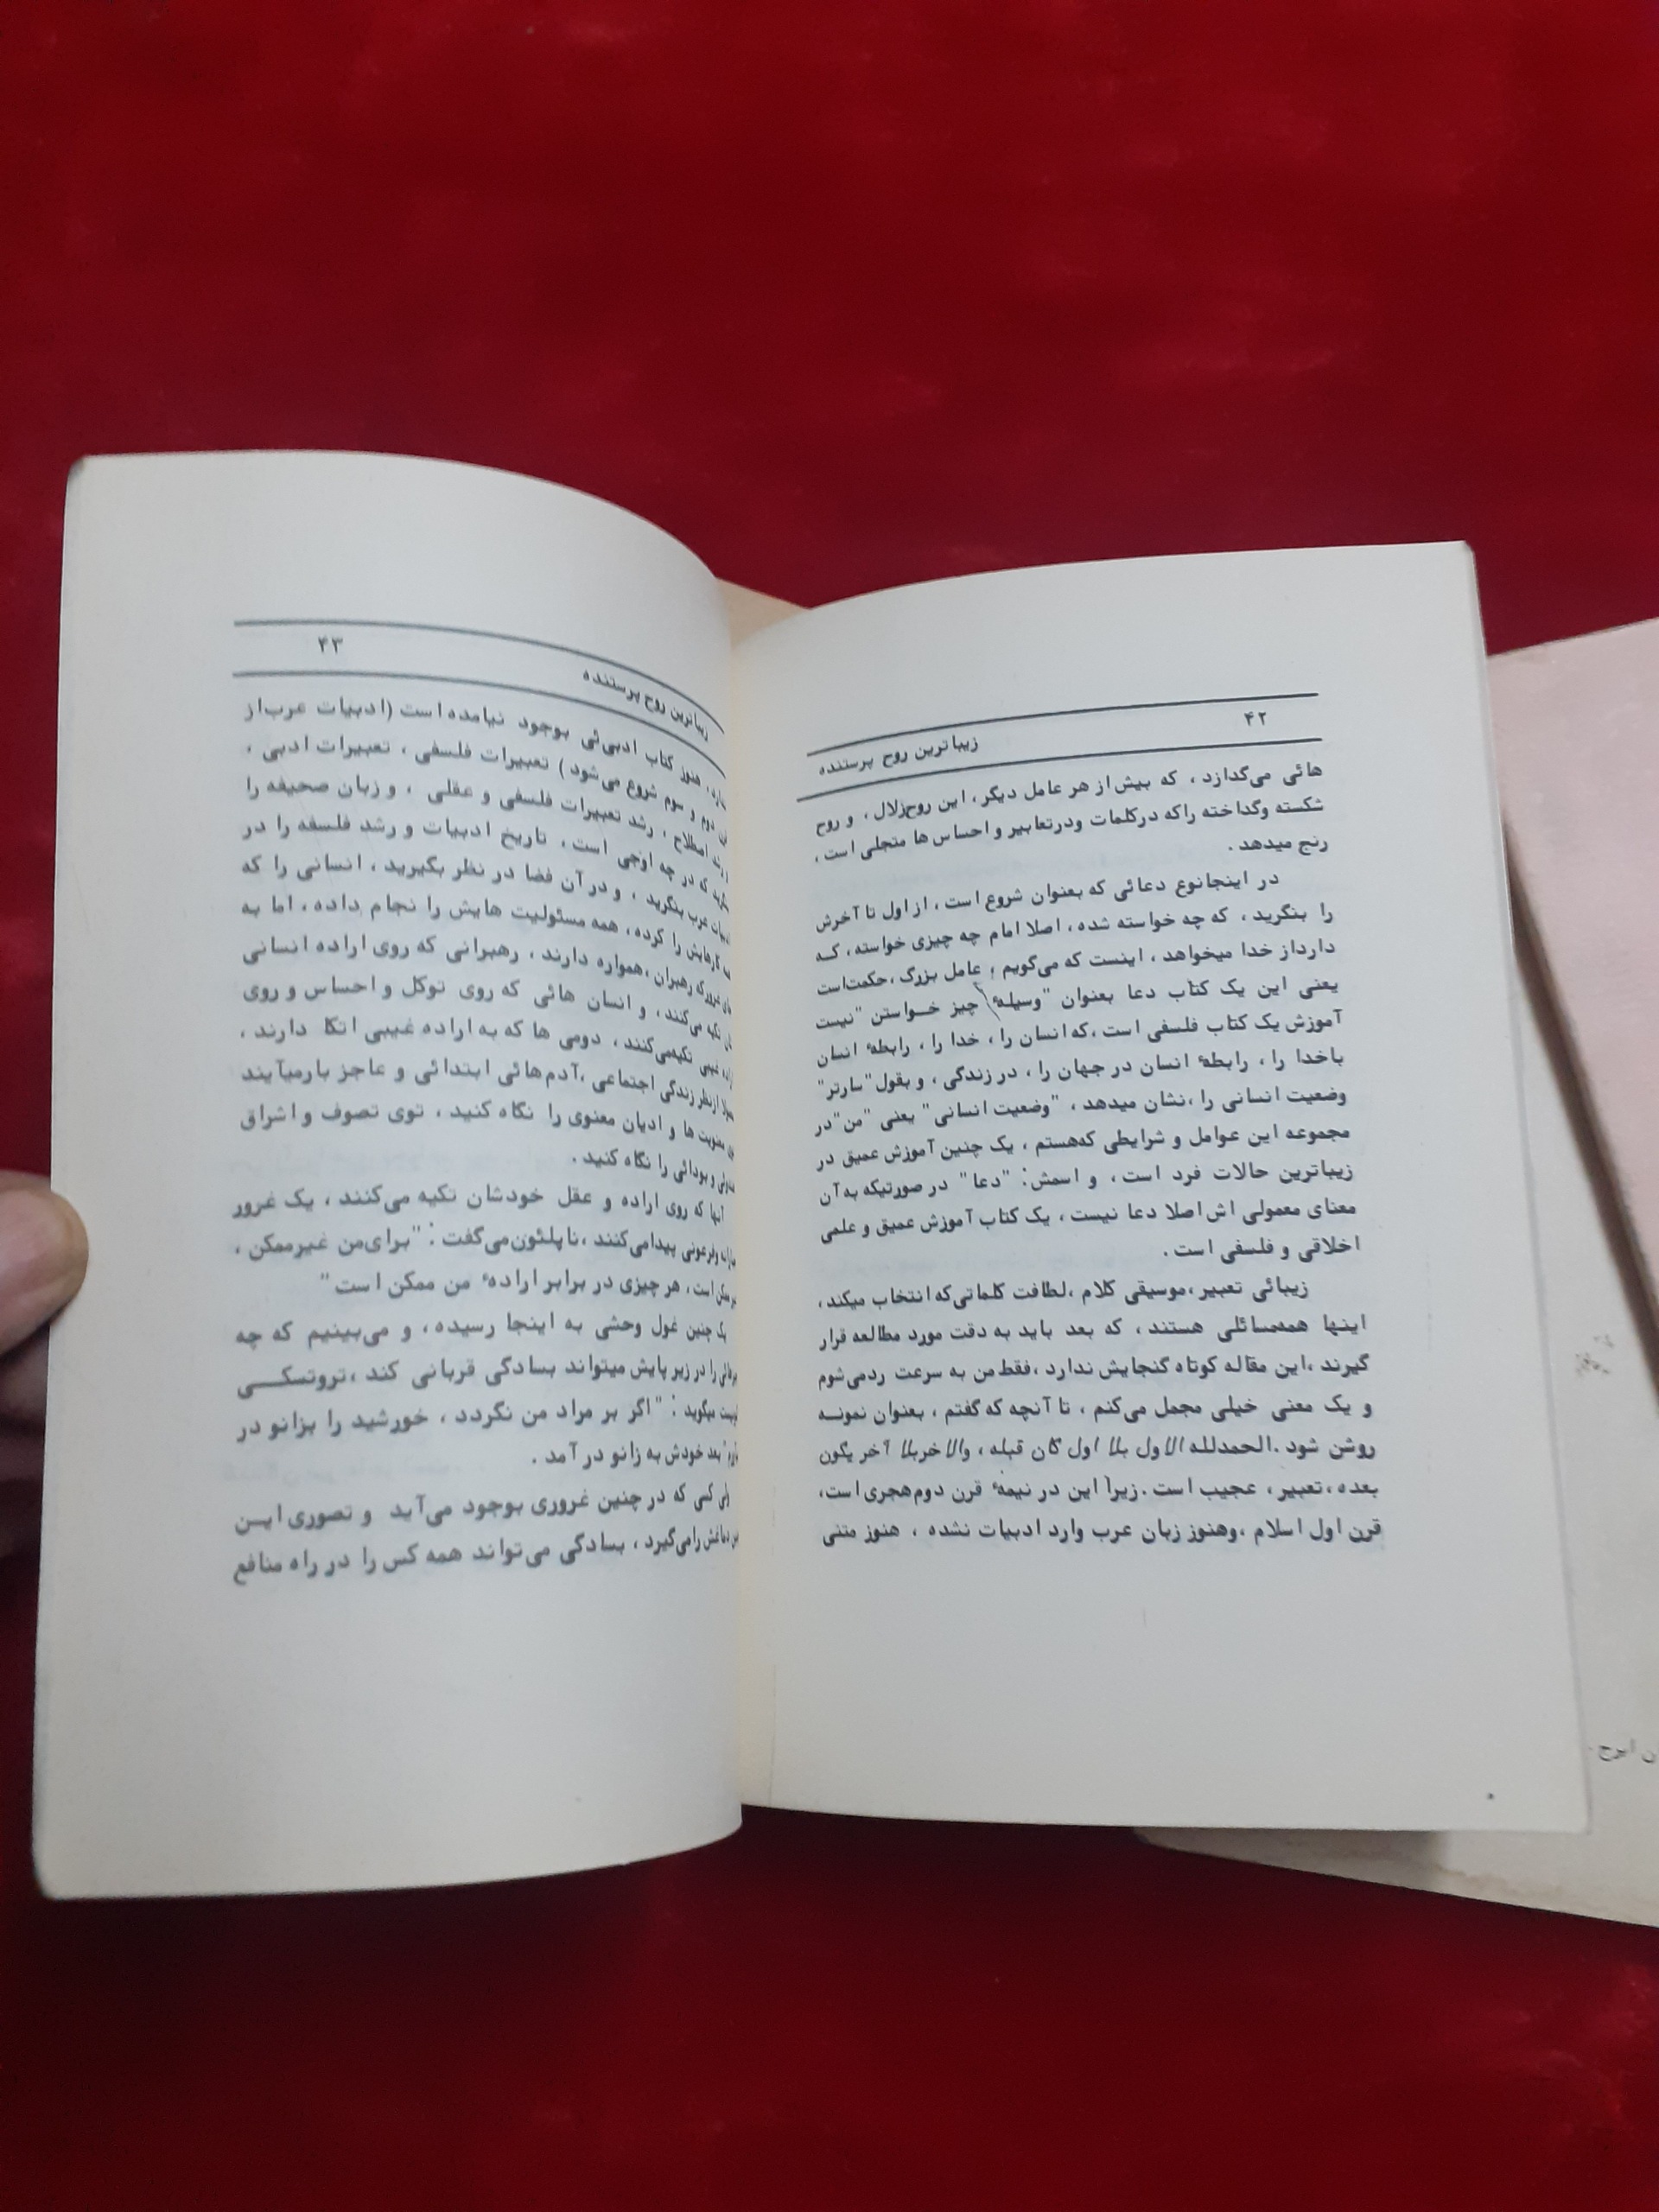 ۴۲
زیباترین روح پرستنده
هائی می‌گدازد، که بیش از هر عامل دیگر، این روح‌زلال، و روح
شکسته وگداخته راکه درکلمات ودرتعابیر و احساس ها متجلی است،
رنج میدهد.
در اینجانوع دعائی که بعنوان شروع است، از اول تا آخرش
را بنگرید، که چه خواسته شده، اصلا امام چه چیزی خواسته، که
دارداز خدا میخواهد، اینست که می‌گویم؛ عامل بزرگ، حکمت‌است
یعنی این یک کتاب دعا بعنوان "وسیلهٔ چیز خواستن" نیست
آموزش یک کتاب فلسفی است، که انسان را، خدا را، رابطهٔ انسان
باخدا را، رابطهٔ انسان در جهان را، در زندگی، و بقول "سارتر"
وضعیت انسانی را، نشان میدهد، "وضعیت انسانی" یعنی "من" در
مجموعه این عوامل و شرایطی که‌هستم، یک چنین آموزش عمیق در
زیباترین حالات فرد است، و اسمش: "دعا" در صورتیکه به آن
معنای معمولی اش اصلا دعا نیست، یک کتاب آموزش عمیق و علمی
اخلاقی و فلسفی است.
زیبائی تعبیر، موسیقی کلام، لطافت کلماتی‌که انتخاب میکند،
اینها همه‌مسائلی هستند، که بعد باید به دقت مورد مطالعه قرار
گیرند، این مقاله کوتاه گنجایش ندارد، فقط من به سرعت ردمی‌شوم
و یک معنی خیلی مجمل می‌کنم، تا آنچه که گفتم، بعنوان نمونه
روشن شود. الحمدلله الاول بلا اول کان قبله، والاخربلا آخر یکون
بعده، تعبیر، عجیب است. زیرا این در نیمهٔ قرن دوم‌هجری است،
قرن اول اسلام، وهنوز زبان عرب وارد ادبیات نشده، هنوز متنی
۴۳
زیباترین روح پرستنده
هنوز کتاب ادبی‌ئی بوجود نیامده است (ادبیات عرب‌از
دوم و سوم شروع می‌شود) تعبیرات فلسفی، تعبیرات ادبی،
اصطلاح، رشد تعبیرات فلسفی و عقلی، و زبان صحیفه را
که در چه اوجی است، تاریخ ادبیات و رشد فلسفه را در
عرب بنگرید، و در آن فضا در نظر بگیرید، انسانی را که
کارهایش را کرده، همه مسئولیت هایش را نجام داده، اما به
که رهبران، همواره دارند، رهبرانی که روی اراده انسانی
تکیه می‌کنند، و انسان هائی که روی توکل و احساس و روی
غیبی تکیه‌می‌کنند، دومی ها که به اراده غیبی اتکا دارند،
ازنظر زندگی اجتماعی، آدم‌هائی ابتدائی و عاجز بارمیآیند
معنویت ها و ادیان معنوی را نگاه کنید، توی تصوف و اشراق
و بودائی را نگاه کنید.
آنها که روی اراده و عقل خودشان تکیه می‌کنند، یک غرور
وفرعونی پیدامی‌کنند، ناپلئون‌می‌گفت: "برای‌من غیرممکن،
ممکن است، هر چیزی در برابر ارادهٔ من ممکن است"
یک چنین غول وحشی به اینجا رسیده، و می‌بینیم که چه
را در زیر پایش میتواند بسادگی قربانی کند، تروتسکی
میگوید: "اگر بر مراد من نگردد، خورشید را بزانو در
بعد خودش به زانو در آمد.
کسی که در چنین غروری بوجود می‌آید و تصوری این
دماغش رامی‌گیرد، بسادگی می‌تواند همه کس را در راه منافع